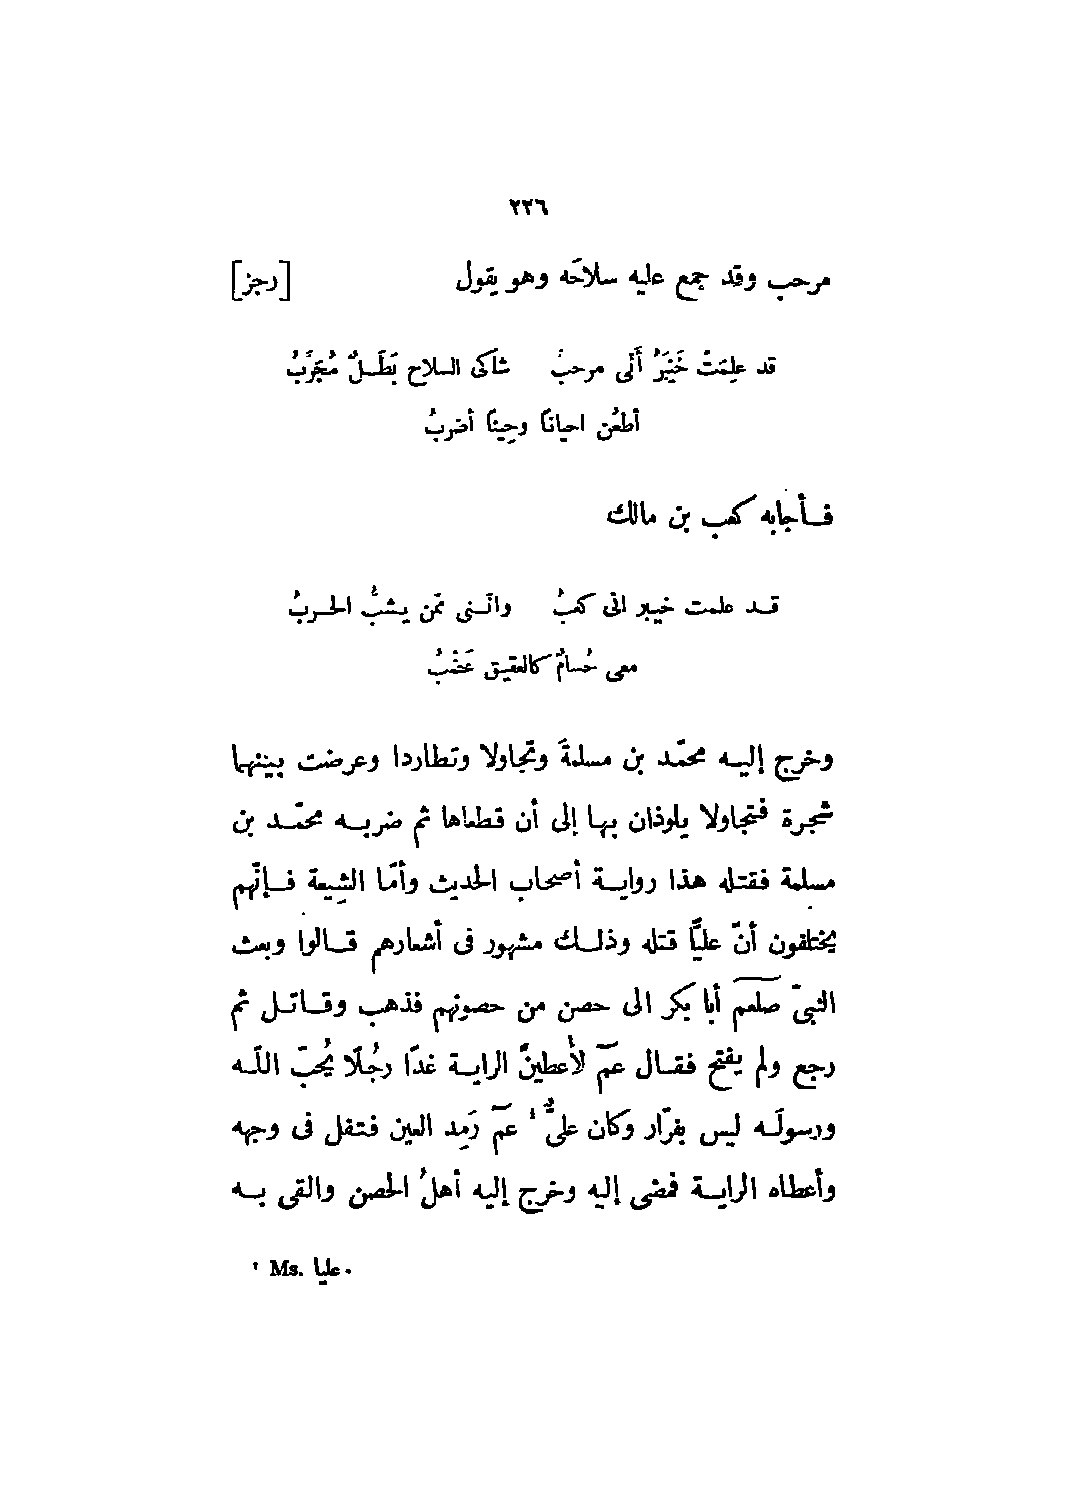 ٢٢٦
مرحب وقد جمع عليه سلاحَه وهو يقول [رجز]
قد علِمَتْ خَيْبَرُ أَنّى مرحبُ شاكى السلاح بَطَلٌ مُجَرَّبُ
أطعُن احيانًا وحِينًا أضربُ
فأجابه كعب بن مالك
قد علمت خيبر انى كعبُ وانّنى ممّن يشبُّ الحربُ
معى حُسامٌ كالعقيق عَضْبُ
وخرج إليه محمّد بن مسلمةَ وتجاولا وتطاردا وعرضت بينهما
شجرة فتجاولا يلوذان بها إلى أن قطعاها ثم ضربه محمّد بن
مسلمة فقتله هذا رواية أصحاب الحديث وأمّا الشِيعة فإنّهم
يختلفون أنّ عليًّا قتله وذلك مشهور فى أشعارهم قالوا وبعث
النبىّ صلعم أبا بكر الى حصن من حصونهم فذهب وقاتل ثم
رجع ولم يفتح فقال عمّ لأعطينّ الراية غدًا رجُلًا يُحبّ اللّه
ورسولَه ليس بفرّار وكان علىٌّ ١ عمّ رَمِد العين فتفل فى وجهه
وأعطاه الراية فمضى إليه وخرج إليه أهلُ الحصن والقى به
١ Ms. عليا.